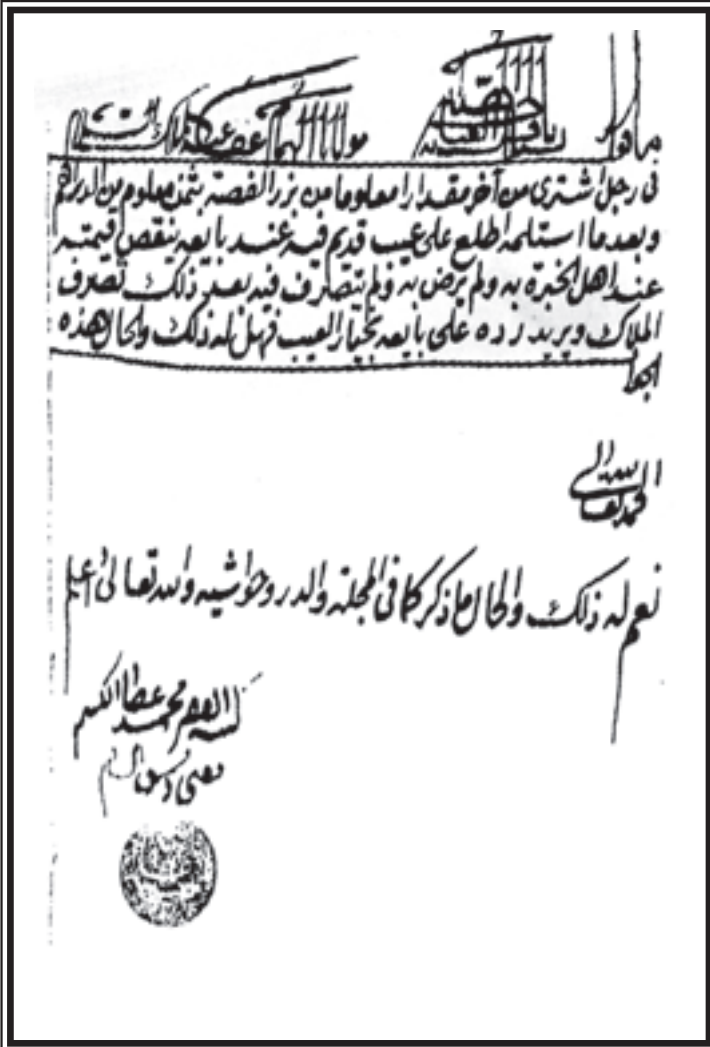 ما قول
مولانا الهمام
في رجل اشترى من آخر مقدارا معلوما من بزر الفصة بثمن معلوم من الدراهم
وبعدما استلمه اطلع على عيب قديم فيه عند بايعه ينقص قيمته
عند اهل الخبرة به ولم يرض به ولم يتصرف فيه بعد ذلك تصرف
الملاك ويريد رده على بايعه بخيار العيب فهل له ذلك والحال هذه
الحمد لله تعالى
نعم له ذلك والحال ما ذكر كما في المجلة والدر وحواشيه والله تعالى اعلم
كتبه الفقير محمد عطا الكسم